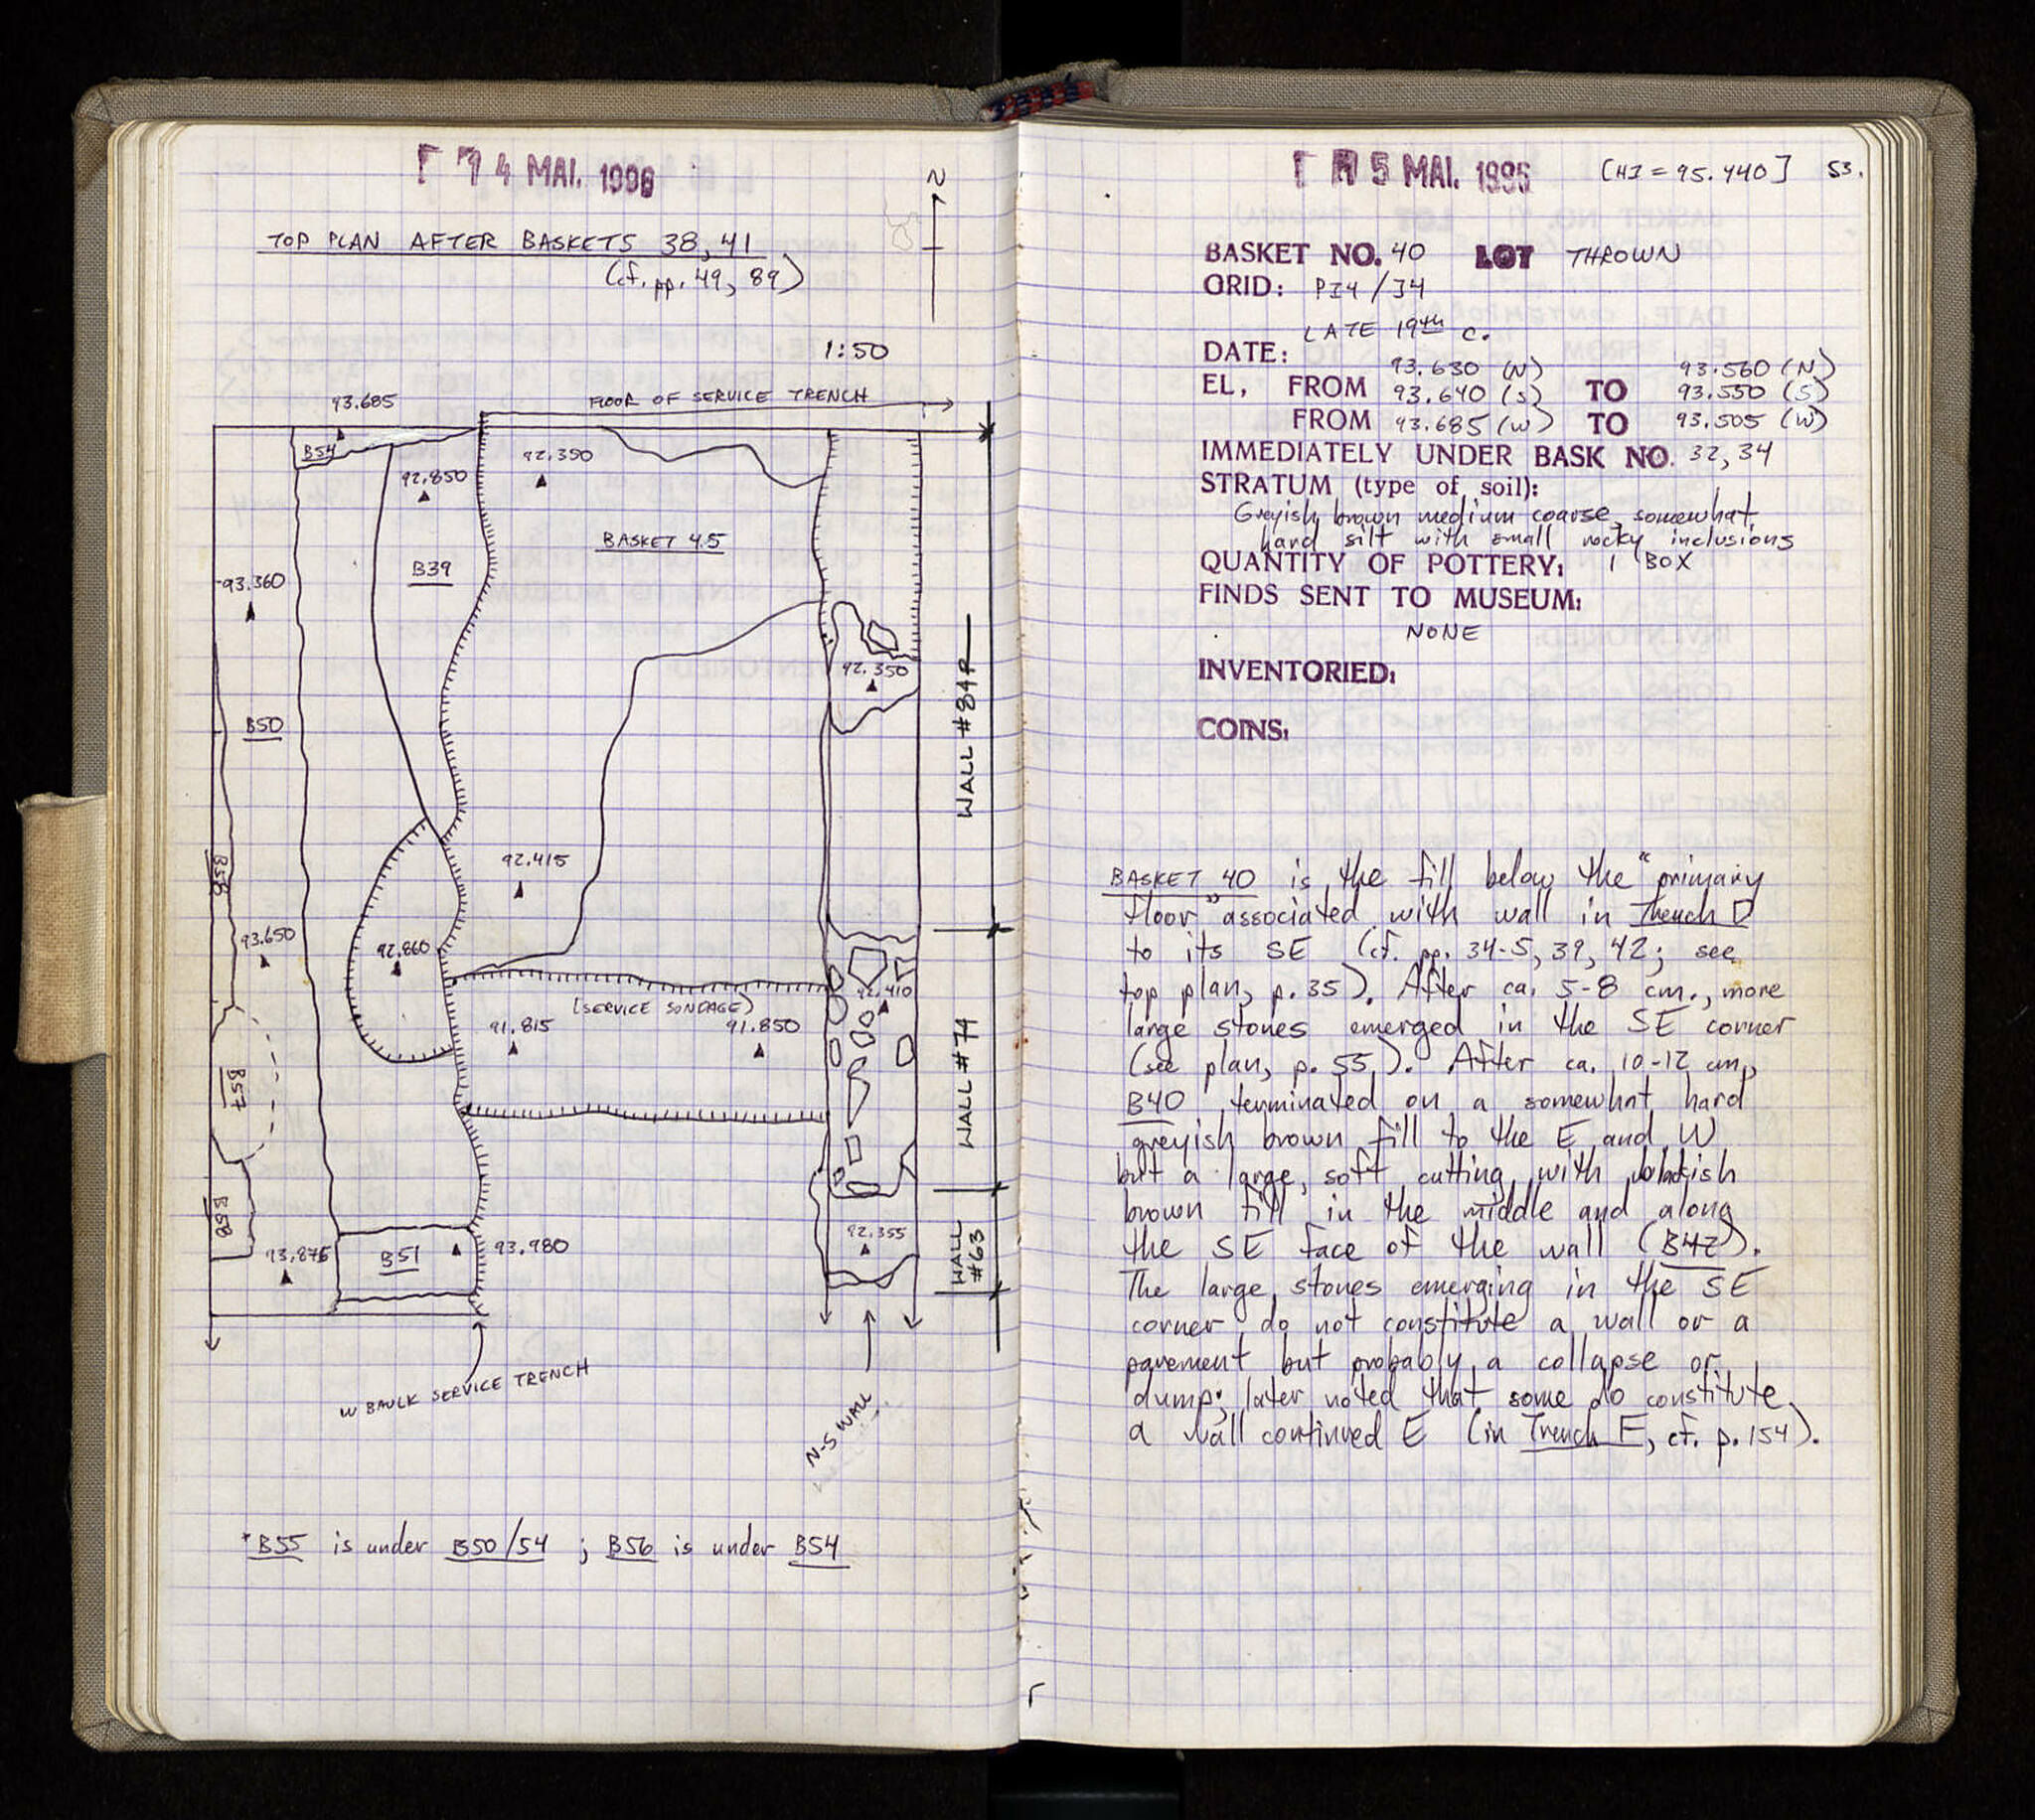 4 MAI. 1996
N
TOP PLAN AFTER BASKETS 38, 41
(cf. pp. 49, 89)
1:50
93.685
FLOOR OF SERVICE TRENCH
B54
92.850
92.350
BASKET 45
B39
93.360
92.350
WALL #84A
B50
B56
92.415
93.650
92.860
92.410
(SERVICE SONDAGE)
91.815
91.850
WALL #74
B57
B58
93.875
B51
93.980
92.355
WALL
#63
W BAULK SERVICE TRENCH
N-S WALL
*B55 is under B50/54 ; B56 is under B54
5 MAI. 1996
[HI = 95.440]
53.
BASKET NO. 40 LOT THROWN
GRID: PI4/J4
LATE 19th c.
DATE:
93.630 (N) 93.560 (N)
EL, FROM 93.640 (S) TO 93.550 (S)
FROM 93.685 (W) TO 93.505 (W)
IMMEDIATELY UNDER BASK NO. 32, 34
STRATUM (type of soil):
Greyish brown medium coarse, somewhat
hard silt with small rocky inclusions
QUANTITY OF POTTERY: 1 BOX
FINDS SENT TO MUSEUM:
NONE
INVENTORIED:
COINS:
BASKET 40 is the fill below the "primary
floor" associated with wall in Trench D
to its SE (cf. pp. 34-5, 39, 42; see
top plan, p. 35). After ca. 5-8 cm., more
large stones emerged in the SE corner
(see plan, p. 55). After ca. 10-12 cm,
B40 terminated on a somewhat hard
greyish brown fill to the E and W
but a large, soft cutting with blackish
brown fill in the middle and along
the SE face of the wall (B42).
The large stones emerging in the SE
corner do not constitute a wall or a
pavement but probably a collapse or
dump; later noted that some do constitute
a wall continued E (in Trench F, cf. p. 154).